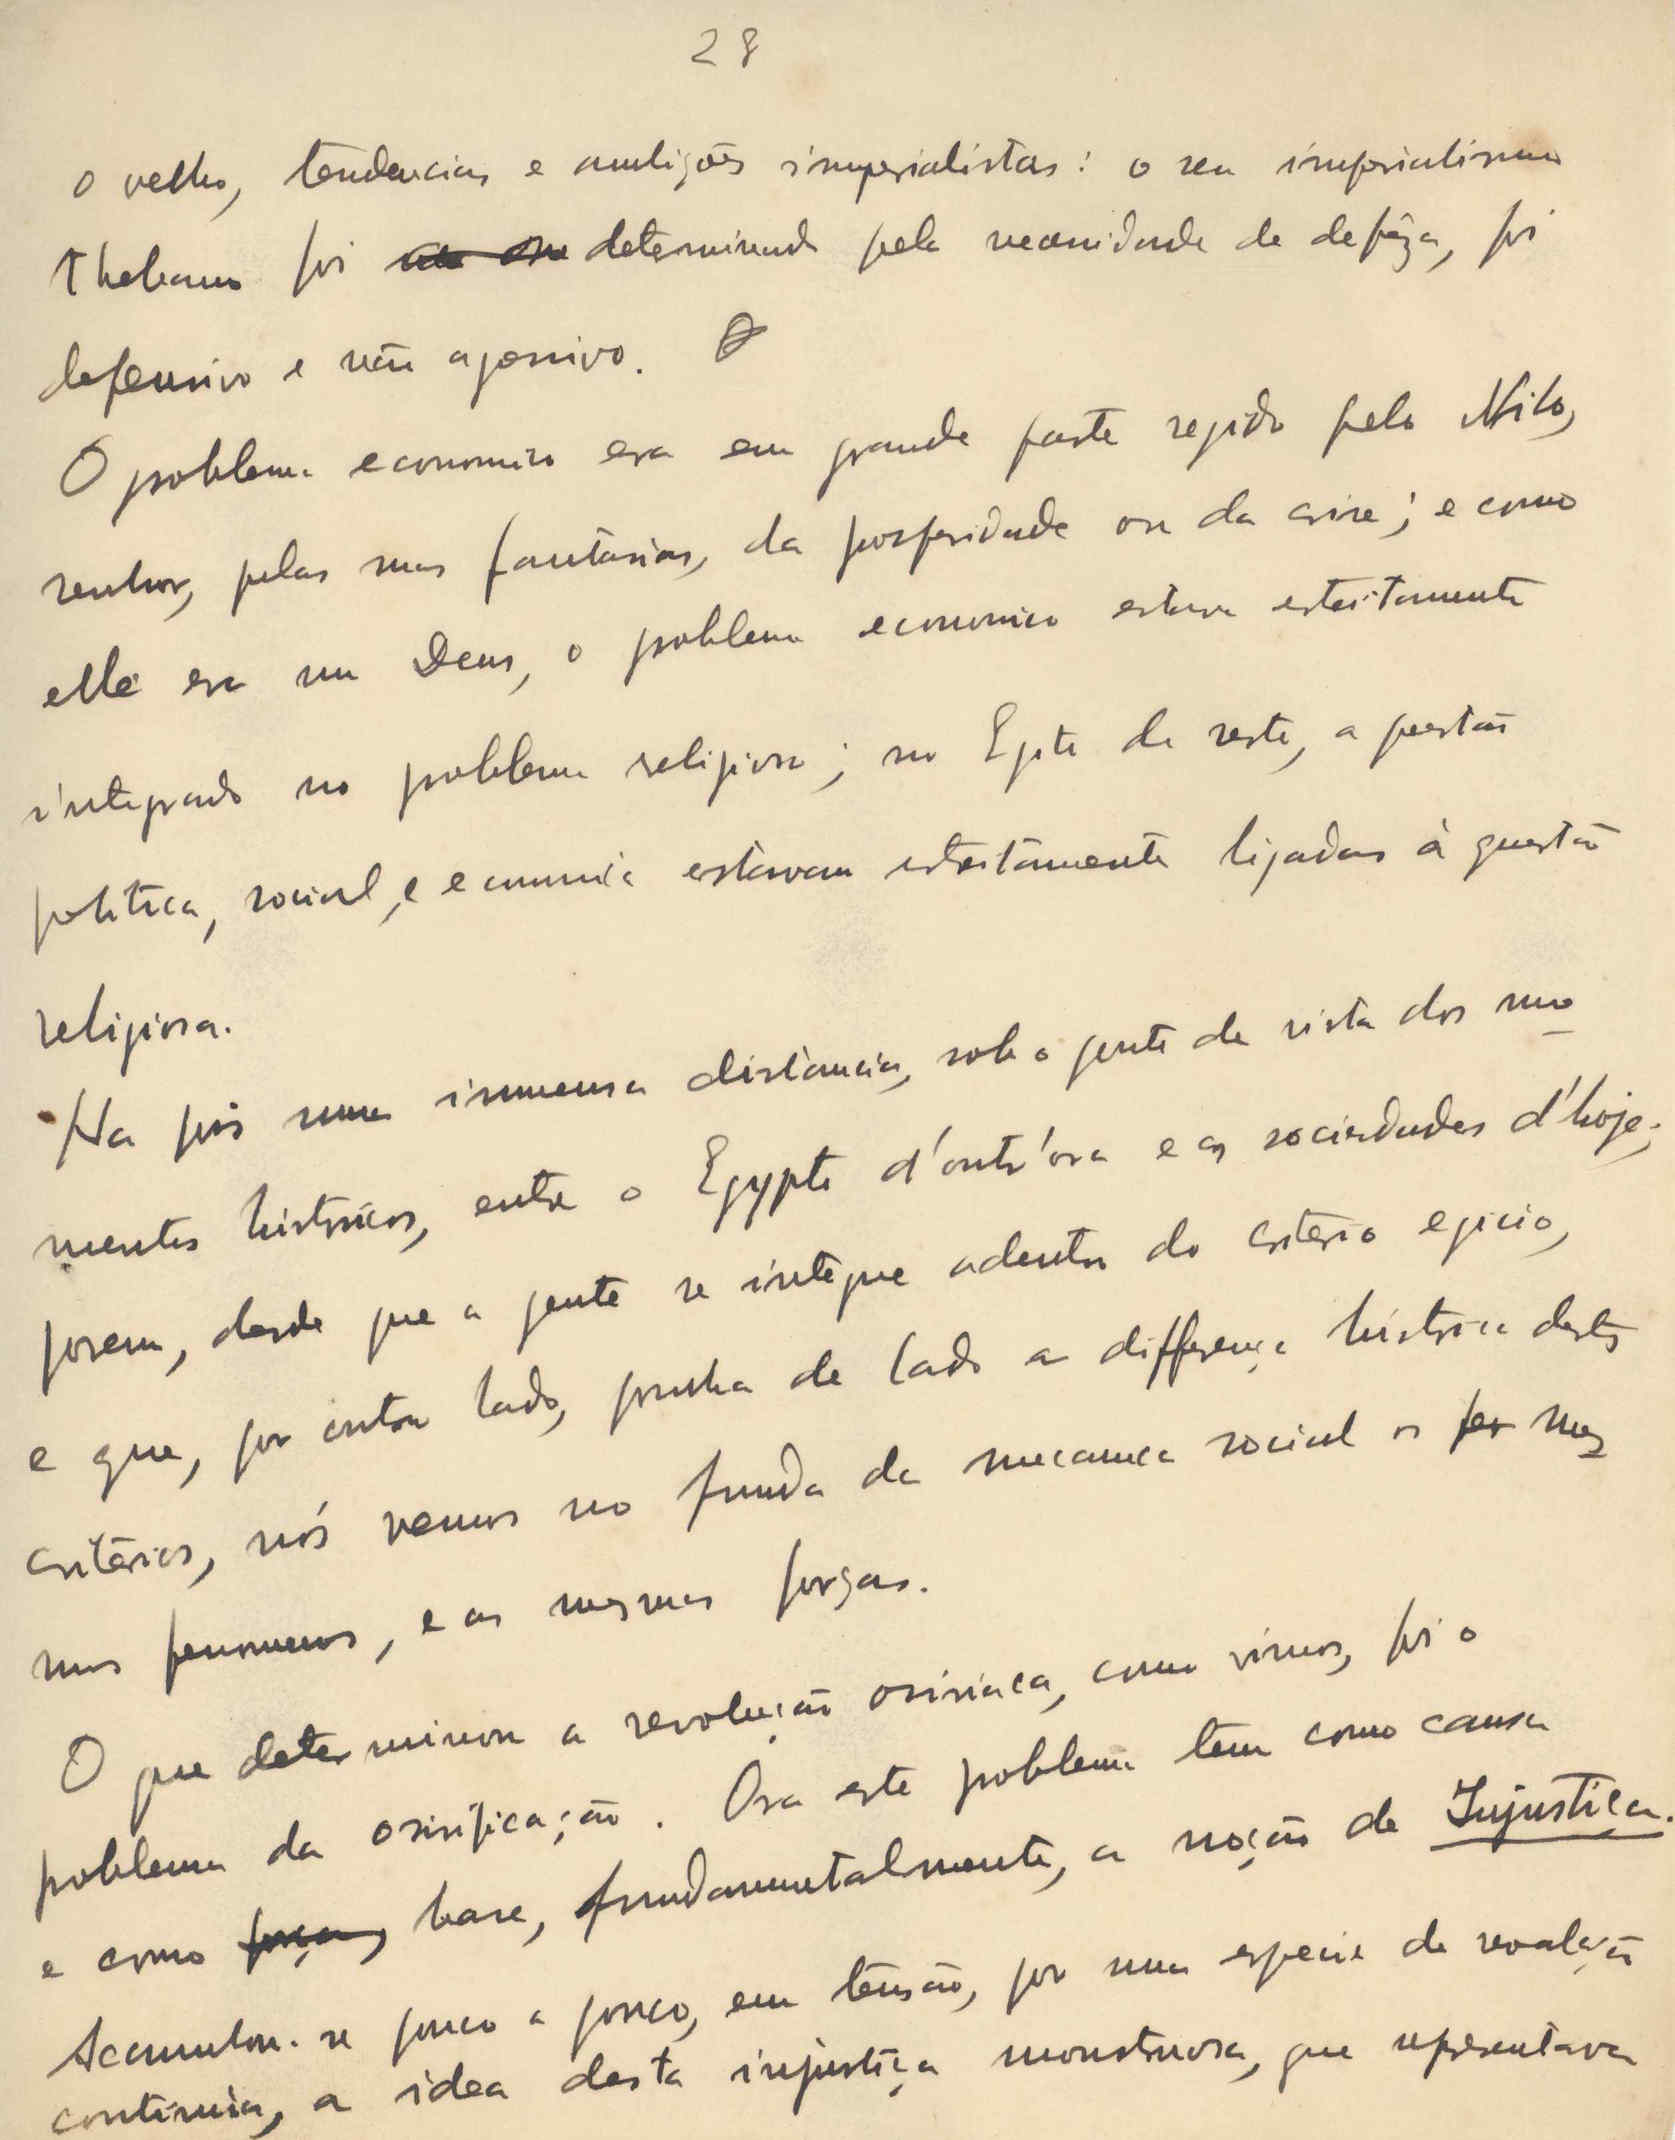 28
o velho, tendencias e ambições imperialistas: o seu imperialismo
thebano foi determinado pela necessidade de defêza, foi
defensivo e não agressivo.
O problema economico era em grande parte regido pelo Nilo,
senhor, pelas suas fantasias, da prosperidade ou da crise; e como
elle era um Deus, o problema economico estava estreitamente
integrado no problema religioso; no Egito de resto, a questão
politica, social, e economica estavam estreitamente ligadas à questão
religiosa.
Ha pois uma immensa distancia, sob o ponto de vista dos mo
mentos historicos, entre o Egypto d'outr'ora e as sociedades d'hoje;
porem, desde que a gente se integre adentro do criterio egicio,
e que, por outro lado, ponha de lado a differença historica destes
criterios, nós vemos no fundo da mecanica social os mes
mos fenomenos, e as mesmas forças.
O que determinou a revolução osiriaca, como vimos, foi o
problema da osirificação. Ora este problema tem como causa
e como base, fundamentalmente, a noção de Injustiça.
Acumulou-se pouco a pouco, em tensão, por uma especie de revolução
continua, a idea desta injustiça monstruosa, que representava